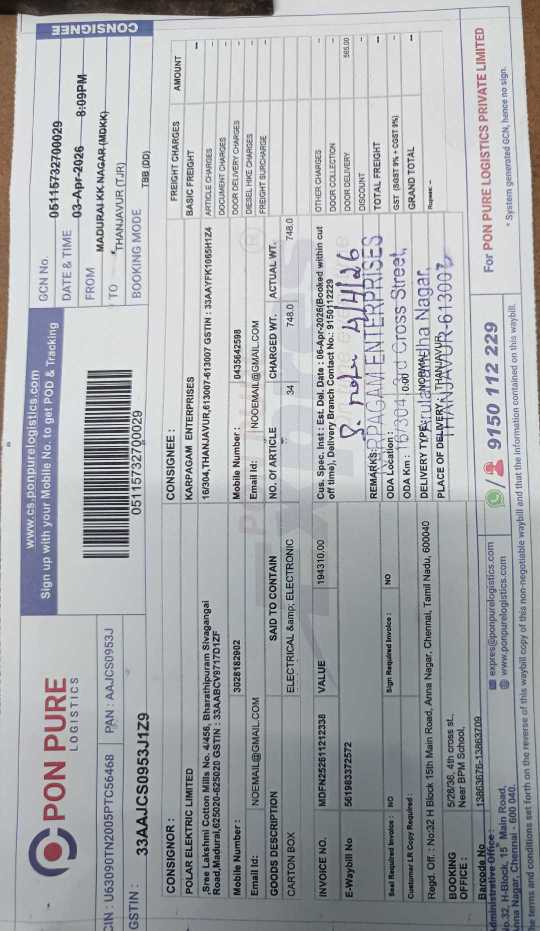 PON PURE
LOGISTICS
www.cs.ponpurelogistics.com
Sign up with your Mobile No. to get POD & Tracking
CONSIGNEE
CIN : U63090TN2005PTC56468 PAN : AAJCS0953J
GSTIN : 33AAJCS0953J1Z9
05115732700029
GCN No. 05115732700029
DATE & TIME 03-Apr-2026 8:09PM
FROM MADURAI KK NAGAR (MDKK)
TO THANJAVUR (TJR)
BOOKING MODE TBB (DD)
CONSIGNOR :
POLAR ELEKTRIC LIMITED
,Sree Lakshmi Cotton Mills No. 4/456, Bharathipuram Sivagangai
Road,Madurai,625020-625020 GSTIN : 33AABCV9717D1ZF
Mobile Number : 3028182902
Email Id: NOEMAIL@GMAIL.COM
CONSIGNEE :
KARPAGAM ENTERPRISES
16/304,THANJAVUR,613007-613007 GSTIN : 33AAYFK1065H1Z4
Mobile Number : 0435642598
Email Id: NOOEMAIL@GMAIL.COM
GOODS DESCRIPTION SAID TO CONTAIN NO. OF ARTICLE CHARGED WT. ACTUAL WT.
CARTON BOX ELECTRICAL &amp; ELECTRONIC 34 748.0 748.0
INVOICE NO. MDFN252611212338 VALUE 194310.00
E-Waybill No 561983372572
Cus. Spec. Inst : Est. Del. Date : 06-Apr-2026(Booked within cut
off time), Delivery Branch Contact No.: 9150112229
Seal Required Invoice : NO Sign Required Invoice : NO
Customer LR Copy Required :
REMARKS:
ODA Location :
ODA Km : 0.00
DELIVERY TYPE : NORMAL
PLACE OF DELIVERY : THANJAVUR
4/4/26
KARPAGAM ENTERPRISES
16/304, 3rd Cross Street,
Arulanandha Nagar,
THANJAVUR-613007
Regd. Off. : No:32 H Block 15th Main Road, Anna Nagar, Chennai, Tamil Nadu, 600040
BOOKING OFFICE : 5/28/36, 4th cross st., Near BPM School,
Barcode No 13863676-13863709
FREIGHT CHARGES AMOUNT
BASIC FREIGHT --
ARTICLE CHARGES --
DOCUMENT CHARGES --
DOOR DELIVERY CHARGES --
DIESEL HIKE CHARGES --
FREIGHT SURCHARGE --
OTHER CHARGES --
DOOR COLLECTION --
DOOR DELIVERY 565.00
DISCOUNT --
TOTAL FREIGHT --
GST (SGST 9% + CGST 9%) --
GRAND TOTAL --
Rupees: --
Administrative Office :
No.32, H-Block, 15th Main Road,
Anna Nagar, Chennai - 600 040.
expres@ponpurelogistics.com
www.ponpurelogistics.com
9150 112 229
For PON PURE LOGISTICS PRIVATE LIMITED
* System generated GCN, hence no sign.
the terms and conditions set forth on the reverse of this waybill copy of this non-negotiable waybill and that the information contained on this waybill.